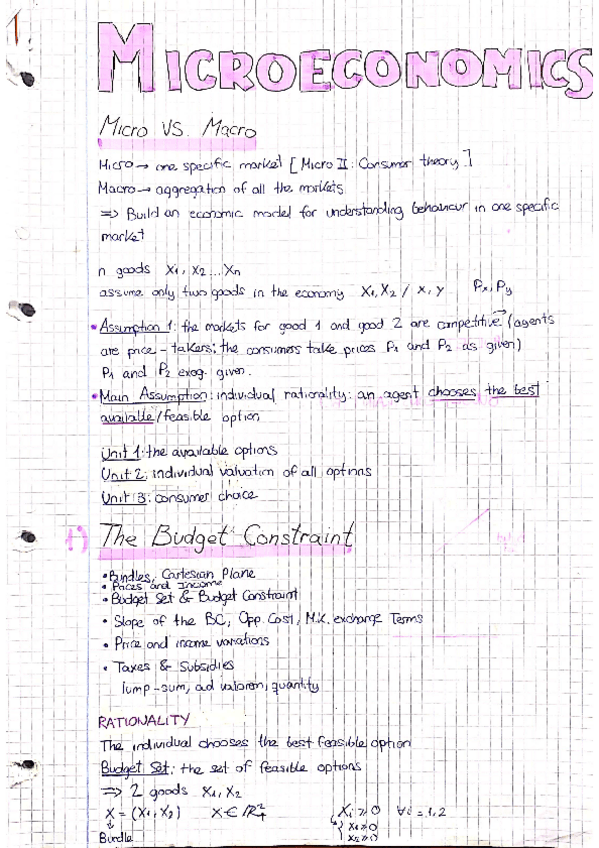 1
MICROECONOMICS
Micro VS. Macro
Micro → one specific market [Micro II: Consumer theory]
Macro → aggregation of all the markets
=> Build an economic model for understanding behaviour in one specific
market
n goods X1, X2 ... Xn
assume only two goods in the economy X1, X2 / x, y Px, Py
• Assumption 1: the markets for good 1 and good 2 are competitive (agents
are price-takers: the consumers take prices P1 and P2 as given)
P1 and P2 exog. given.
• Main Assumption: individual rationality: an agent chooses the best
available/feasible option
Unit 1: the available options
Unit 2: individual valuation of all options
Unit 3: consumer choice
1) The Budget Constraint
• Bundles, Cartesian Plane
• Prices and Income
• Budget Set & Budget Constraint
• Slope of the BC, Opp. Cost, M.K. exchange Terms
• Price and income variations
• Taxes & Subsidies
lump-sum, ad valorem, quantity
RATIONALITY
The individual chooses the best feasible option
Budget Set: the set of feasible options
=> 2 goods X1, X2
X = (X1, X2) X ∈ ℝ²₊ Xi ≥ 0 ∀i = 1, 2
↓ ↳ { X1 ≥ 0
Bundle X2 ≥ 0